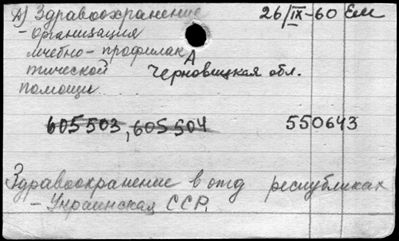 А) Здравоохранение 26/IX-60 Ем
- организация
лечебно-профилак
А
тической Черновицкая обл.
помощи
605503, 605504 550643
Здравоохранение в отд республиках
- Украинская ССР.